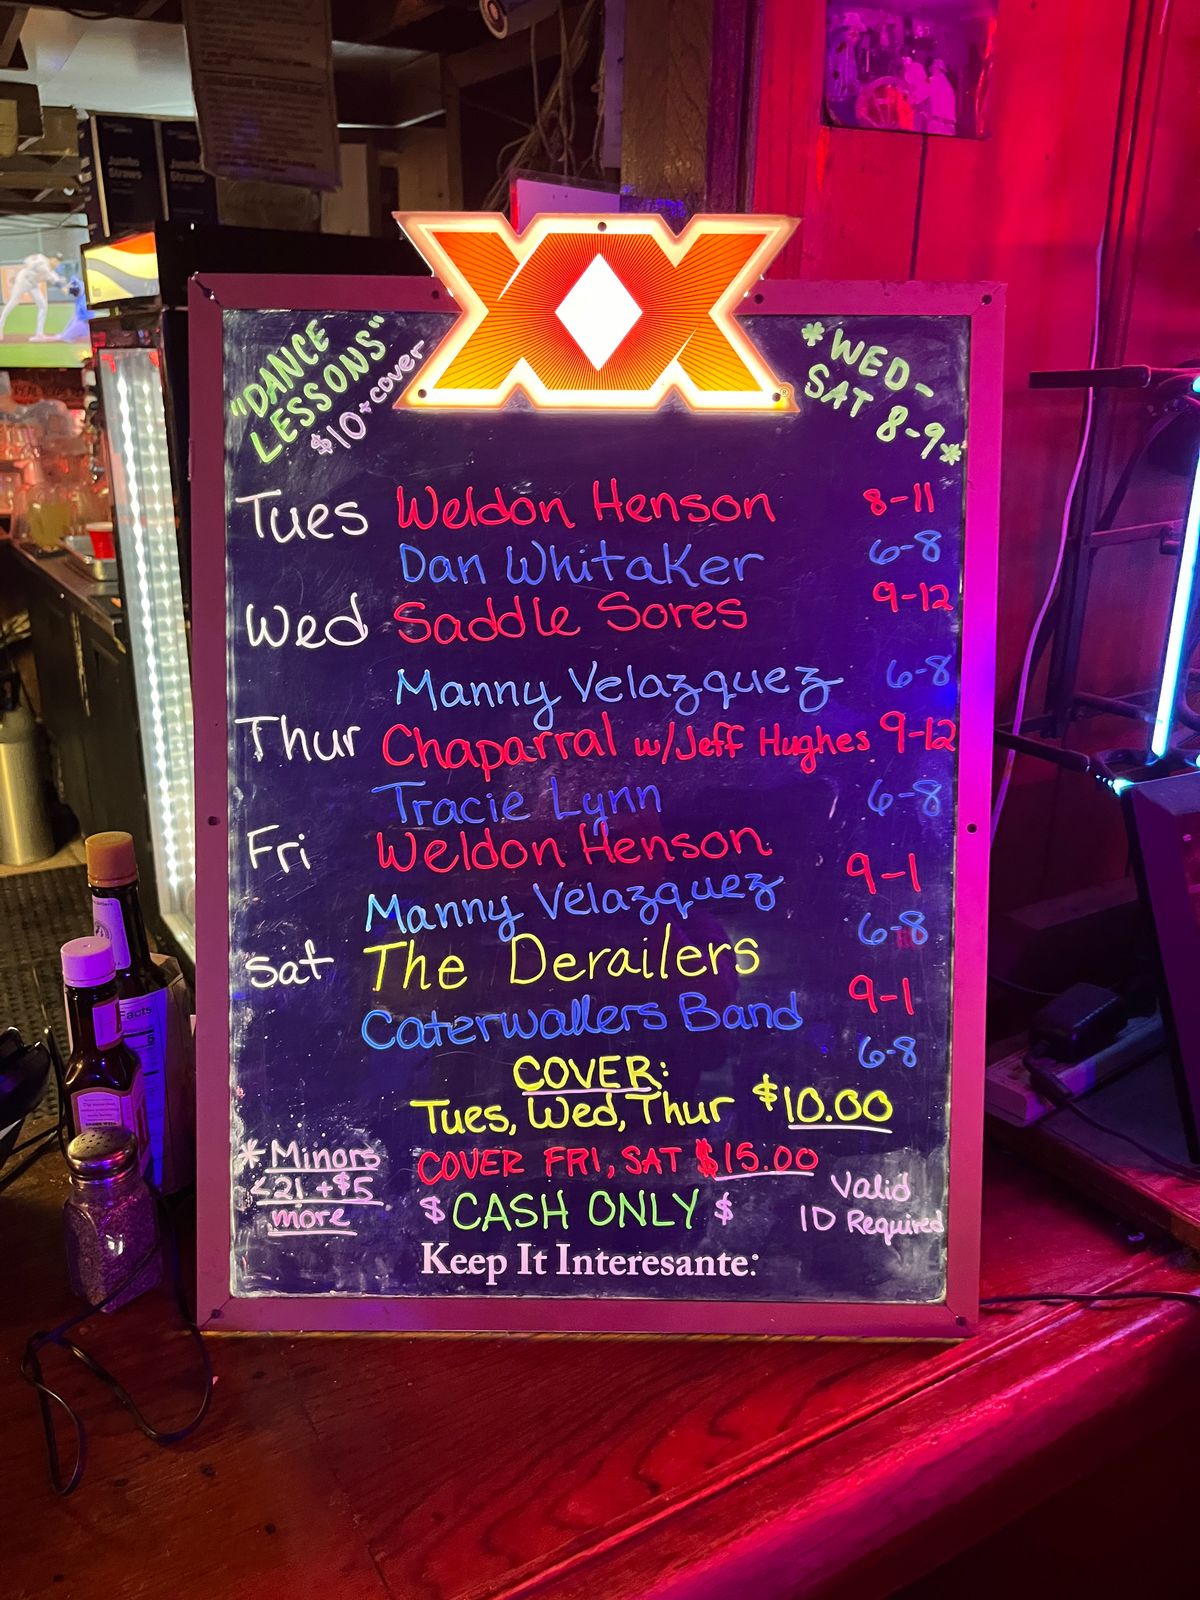 Jumbo
Straws
Jumbo
Straws
XX
"DANCE
LESSONS"
$10+cover
*WED-
SAT 8-9*
Tues Weldon Henson 8-11
Dan Whitaker 6-8
Wed Saddle Sores 9-12
Manny Velazquez 6-8
Thur Chaparral w/Jeff Hughes 9-12
Tracie Lynn 6-8
Fri Weldon Henson 9-1
Manny Velazquez 6-8
Sat The Derailers 9-1
Caterwallers Band 6-8
COVER:
Tues, Wed, Thur $10.00
COVER FRI, SAT $15.00
$ CASH ONLY $
* Minors
<21 +$5
more
Valid
ID Required
Keep It Interesante:
Facts